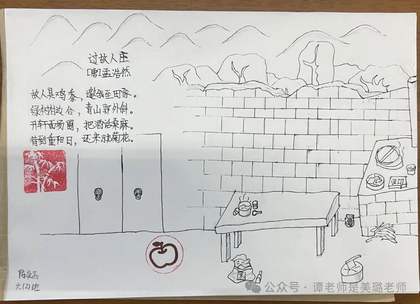 过故人庄
孟浩然
故人具鸡黍，邀我至田家。
绿树村边合，青山郭外斜。
开轩面场圃，把酒话桑麻。
待到重阳日，还来就菊花。
公众号 · 谭老师是美璐老师